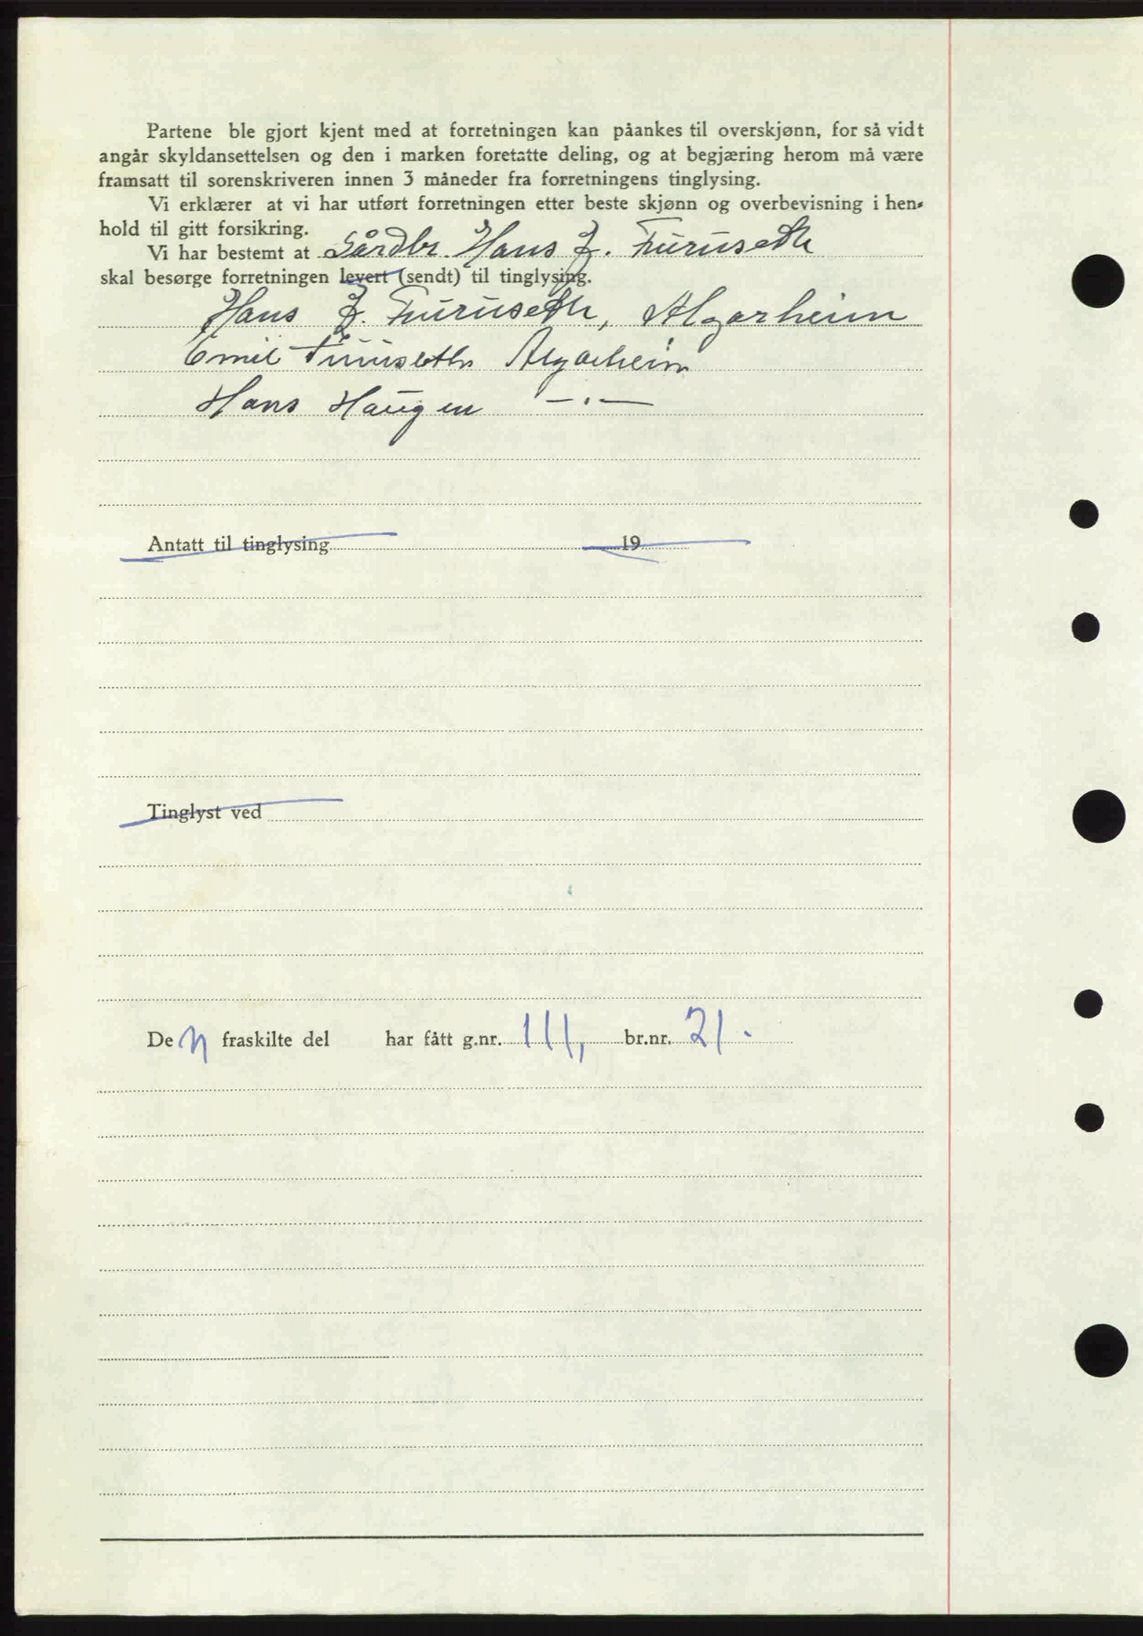 Partene ble gjort kjent med at forretningen kan påankes til overskjønn, for så vidt
angår skyldansettelsen og den i marken foretatte deling, og at begjæring herom må være
framsatt til sorenskriveren innen 3 måneder fra forretningens tinglysing.
Vi erklærer at vi har utført forretningen etter beste skjønn og overbevisning i hen-
hold til gitt forsikring.
Vi har bestemt at Gårdbr. Hans Z. Furuseth
skal besørge forretningen levert (sendt) til tinglysing.
Hans Z. Furuseth, Algarheim
Emil Furuseth Algarheim
Hans Haugen —·—
Antatt til tinglysing 19
Tinglyst ved
De n fraskilte del har fått g.nr. 111, br.nr. 21.